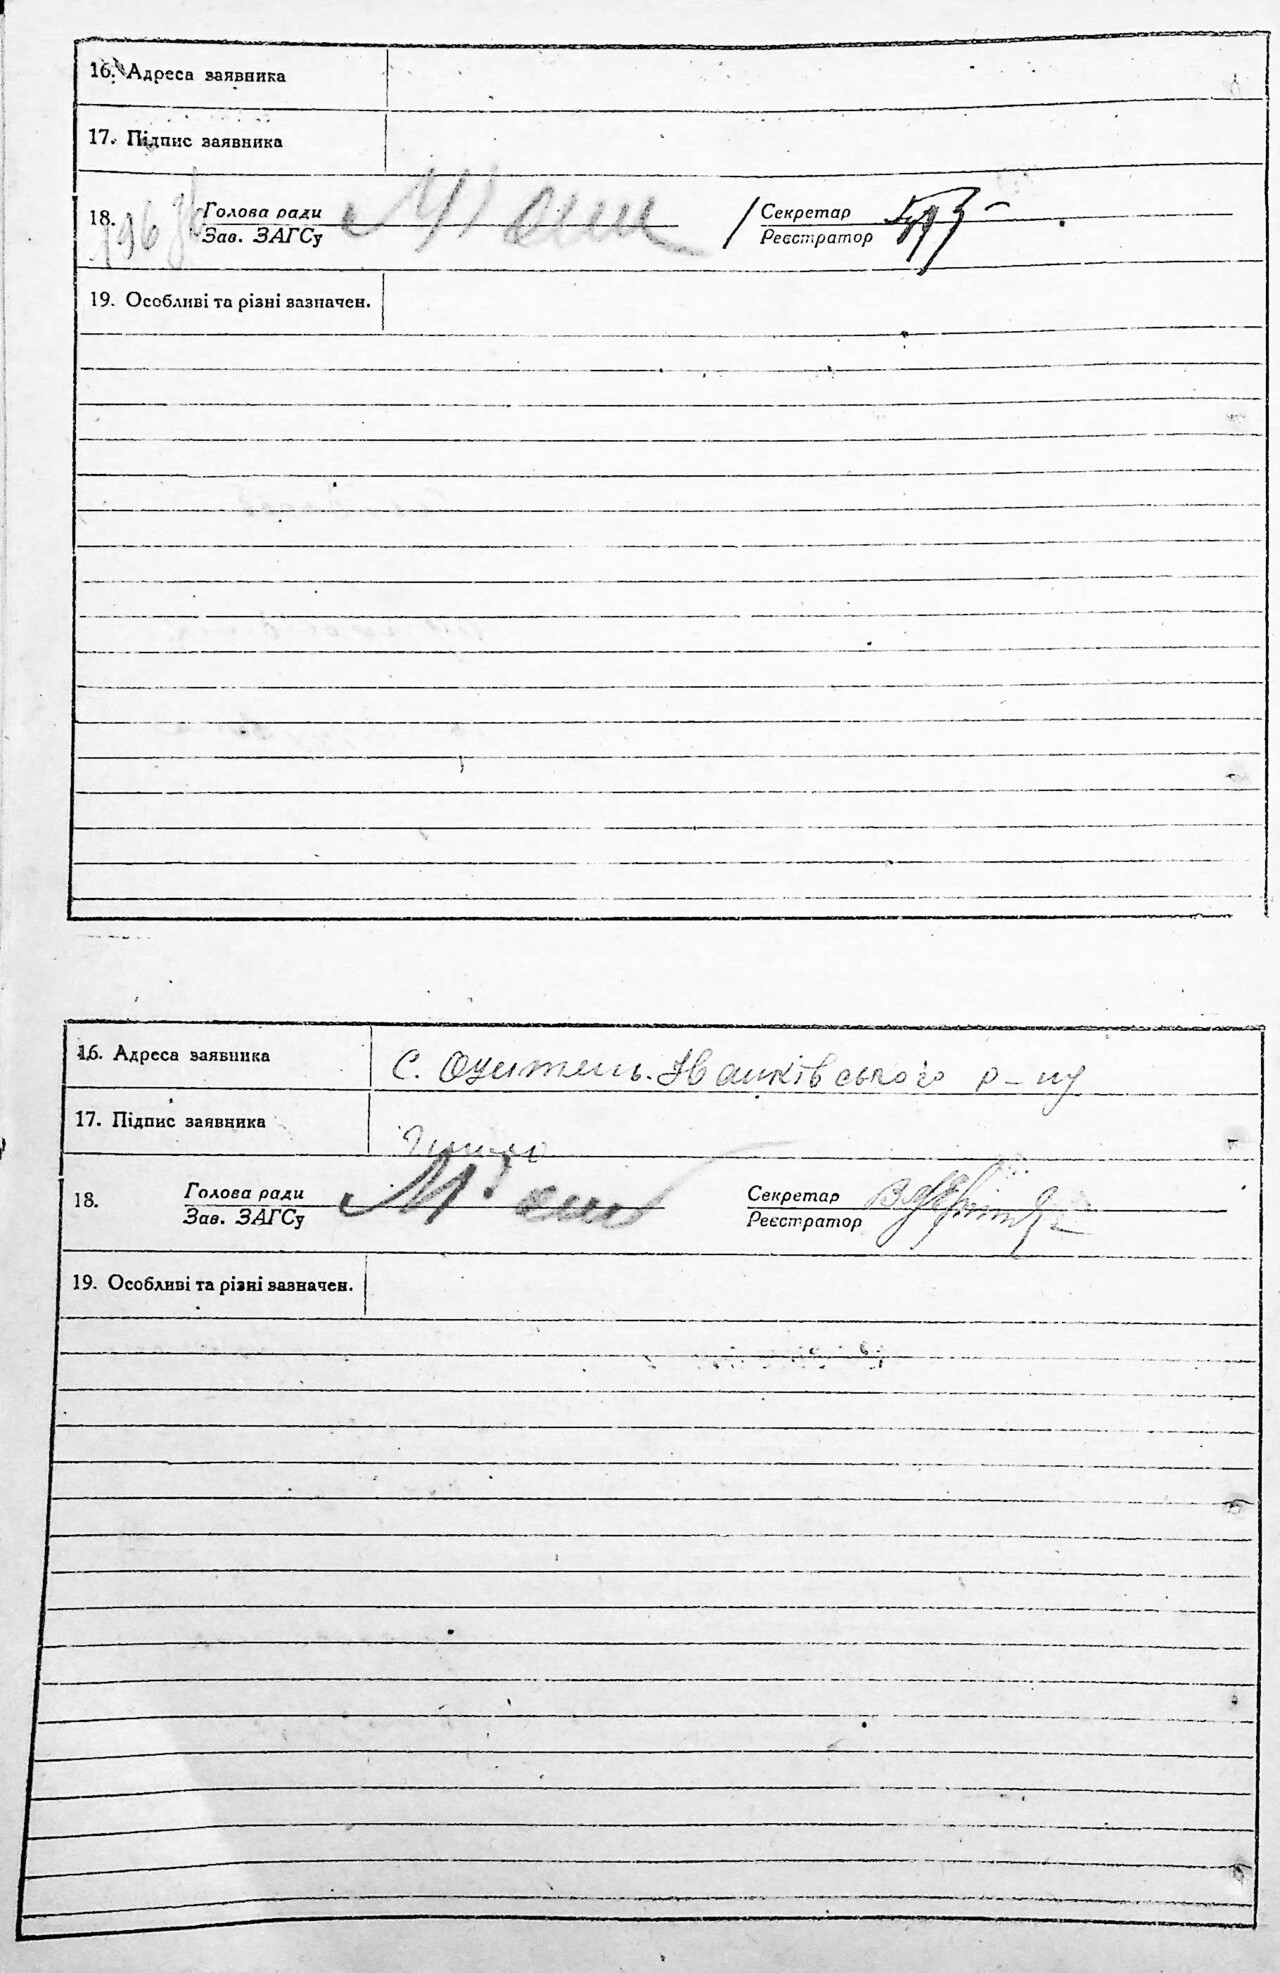 16. Адреса заявника
17. Підпис заявника
18. Голова ради Секретар
Зав. ЗАГСу Реєстратор
196
19. Особливі та різні зазначен.
16. Адреса заявника С. Оцитель. Іванківського р-ну
17. Підпис заявника
18. Голова ради Секретар
Зав. ЗАГСу Реєстратор
19. Особливі та різні зазначен.